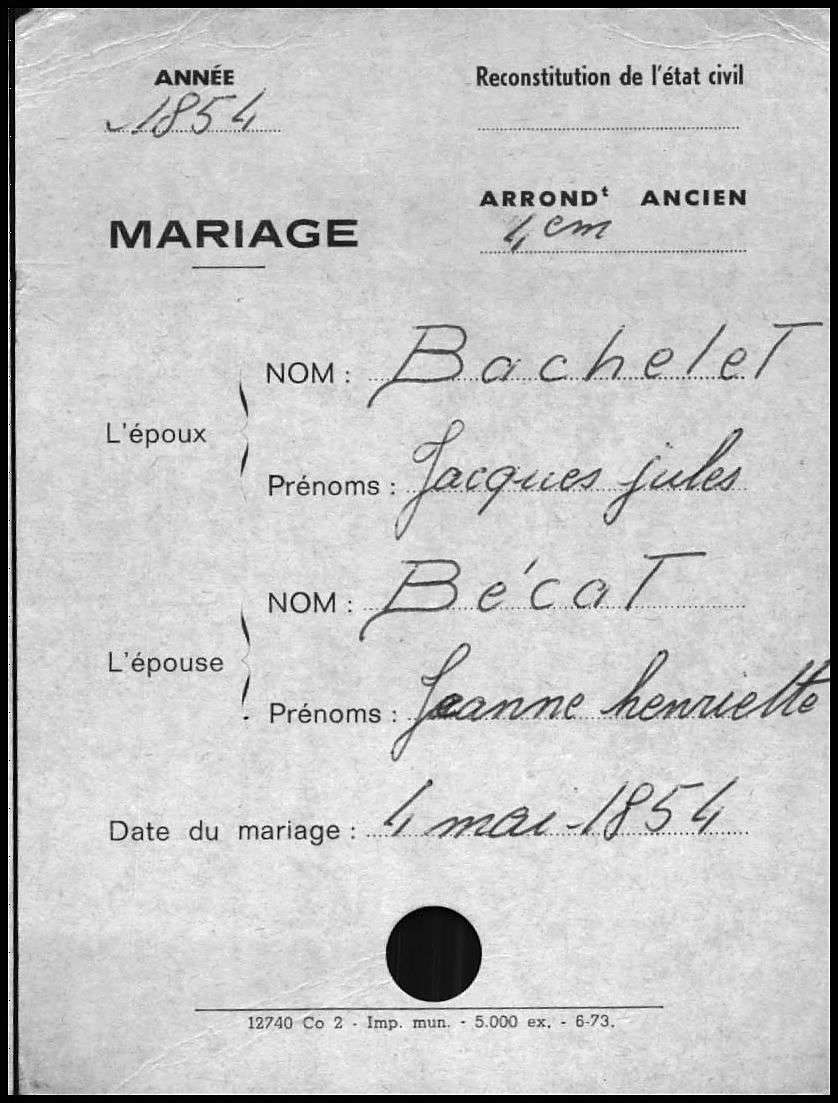 ANNÉE
1854
Reconstitution de l'état civil
ARRONDt ANCIEN
4em
MARIAGE
L'époux
NOM : Bachelet
Prénoms : Jacques jules
L'épouse
NOM : Bécat
Prénoms : Jeanne henriette
Date du mariage : 4 mai 1854
12740 Co 2 - Imp. mun. - 5.000 ex. - 6-73.